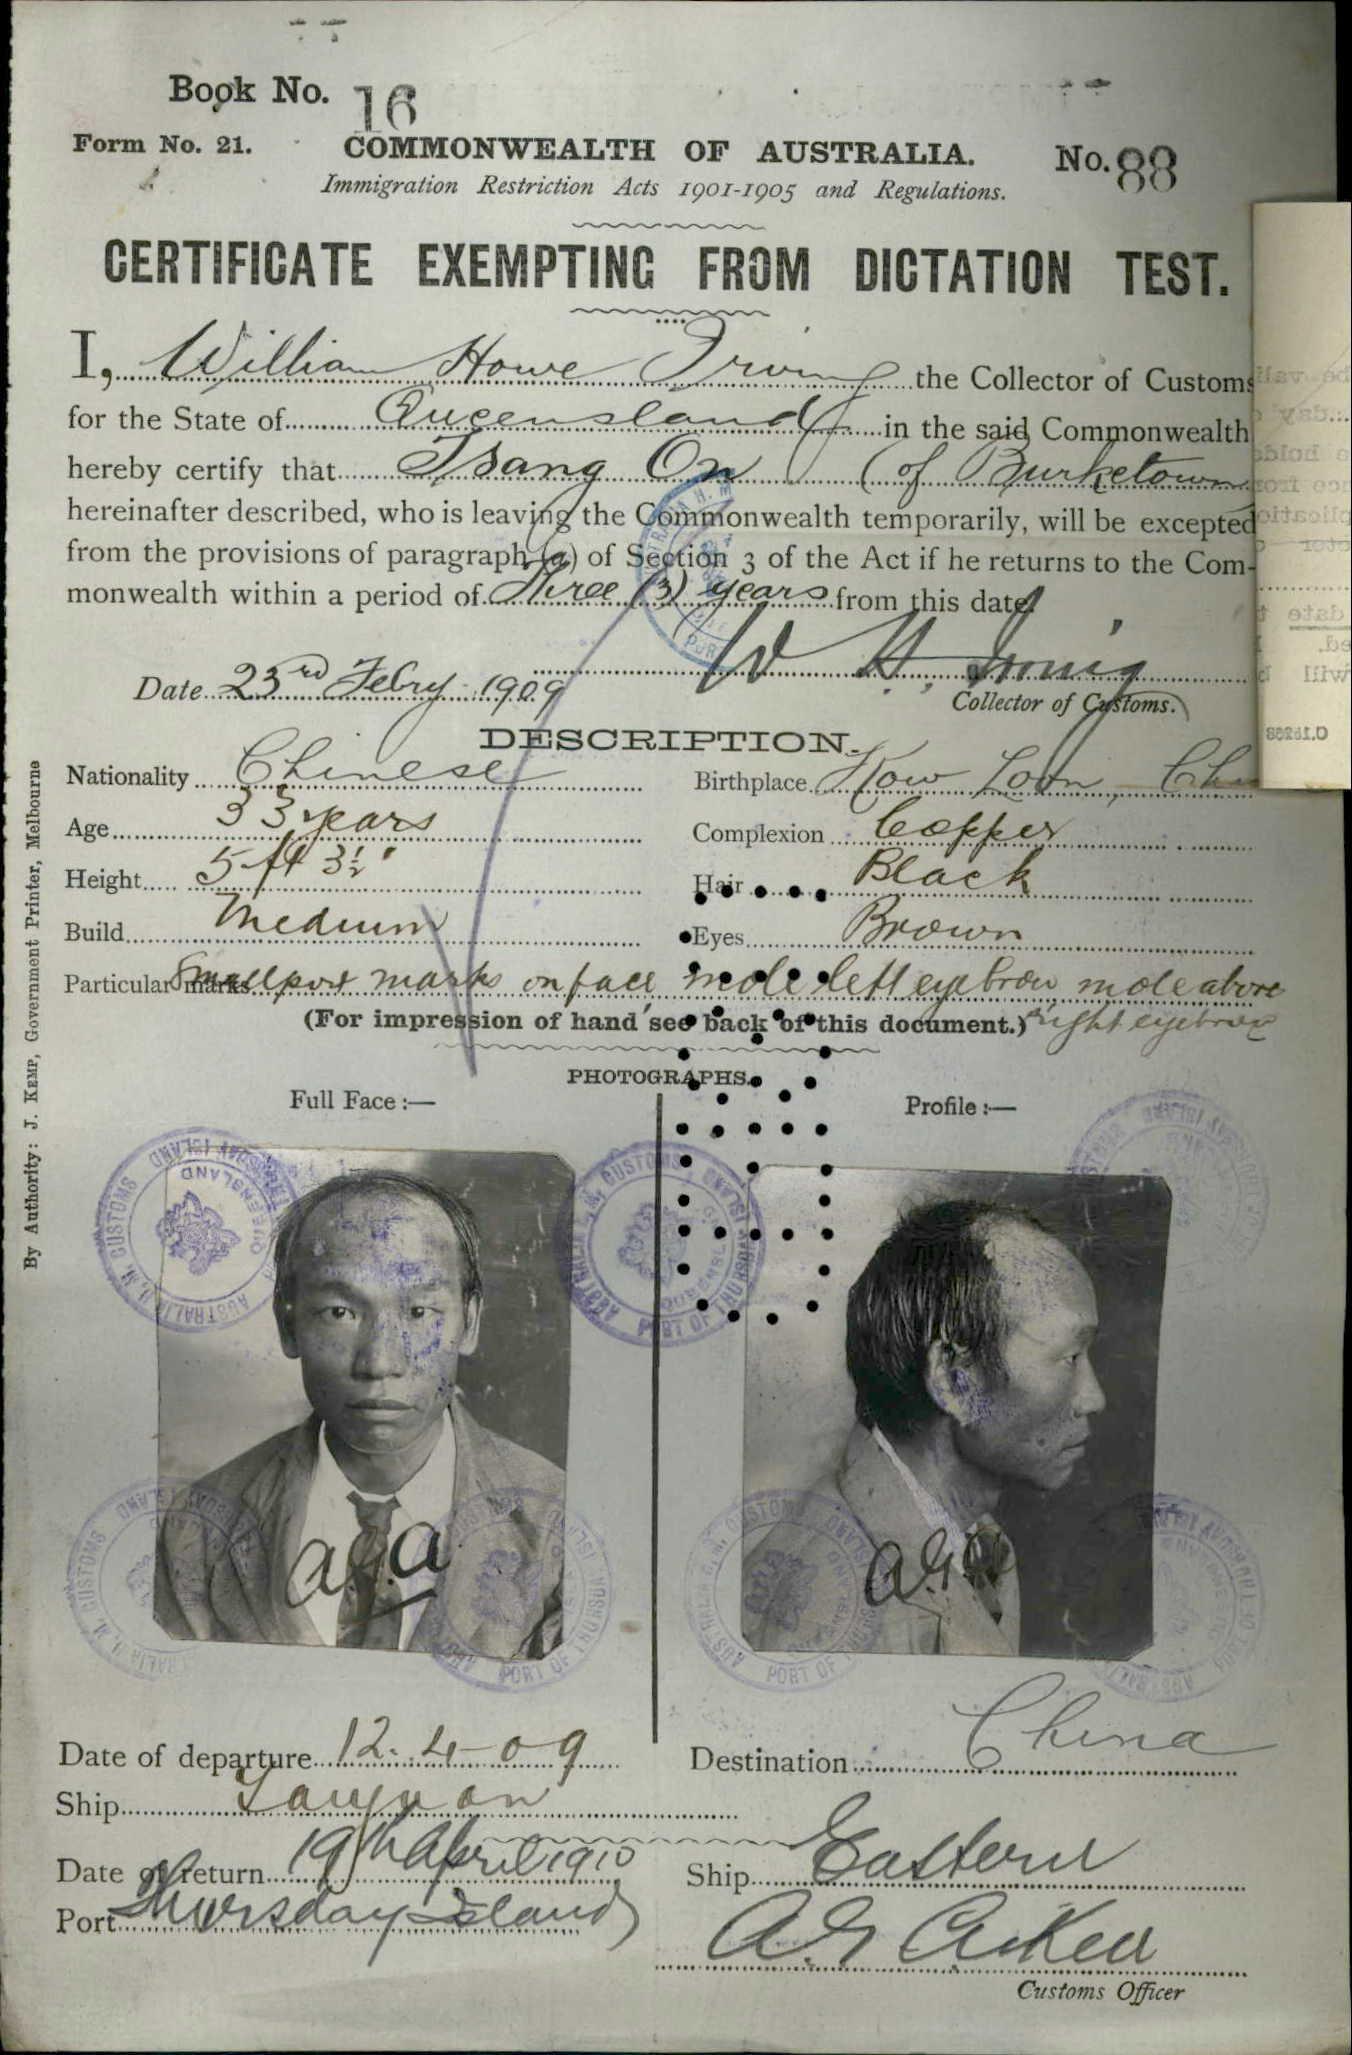 Book No. 16
Form No. 21.
COMMONWEALTH OF AUSTRALIA.
No. 88
Immigration Restriction Acts 1901-1905 and Regulations.
CERTIFICATE EXEMPTING FROM DICTATION TEST.
I, William Howe Irving the Collector of Customs
for the State of Queensland in the said Commonwealth
hereby certify that Tsang On (of Burketown
hereinafter described, who is leaving the Commonwealth temporarily, will be excepted
from the provisions of paragraph (a) of Section 3 of the Act if he returns to the Com-
monwealth within a period of Three (3) years from this date.
W H Irving
Date 23rd Febry 1909
Collector of Customs.
DESCRIPTION.
Nationality Chinese
Birthplace Kow Loon, Chi
Age 33 years
Complexion Copper
Height 5 ft 3½"
Hair Black
Build Medium
Eyes Brown
Particular marks Smallpox marks on face mole left eyebrow mole above
right eyebrow
(For impression of hand see back of this document.)
PHOTOGRAPHS.
Full Face :—
Profile :—
AUSTRALIA H. M. CUSTOMS
PORT OF THURSDAY ISLAND
QUEENSLAND
a.g.a
a.g.a
Date of departure 12-4-09
Destination China
Ship Taiyuan
Date of return 19th April 1910
Ship Eastern
Port Thursday Island
Customs Officer
By Authority: J. KEMP, Government Printer, Melbourne